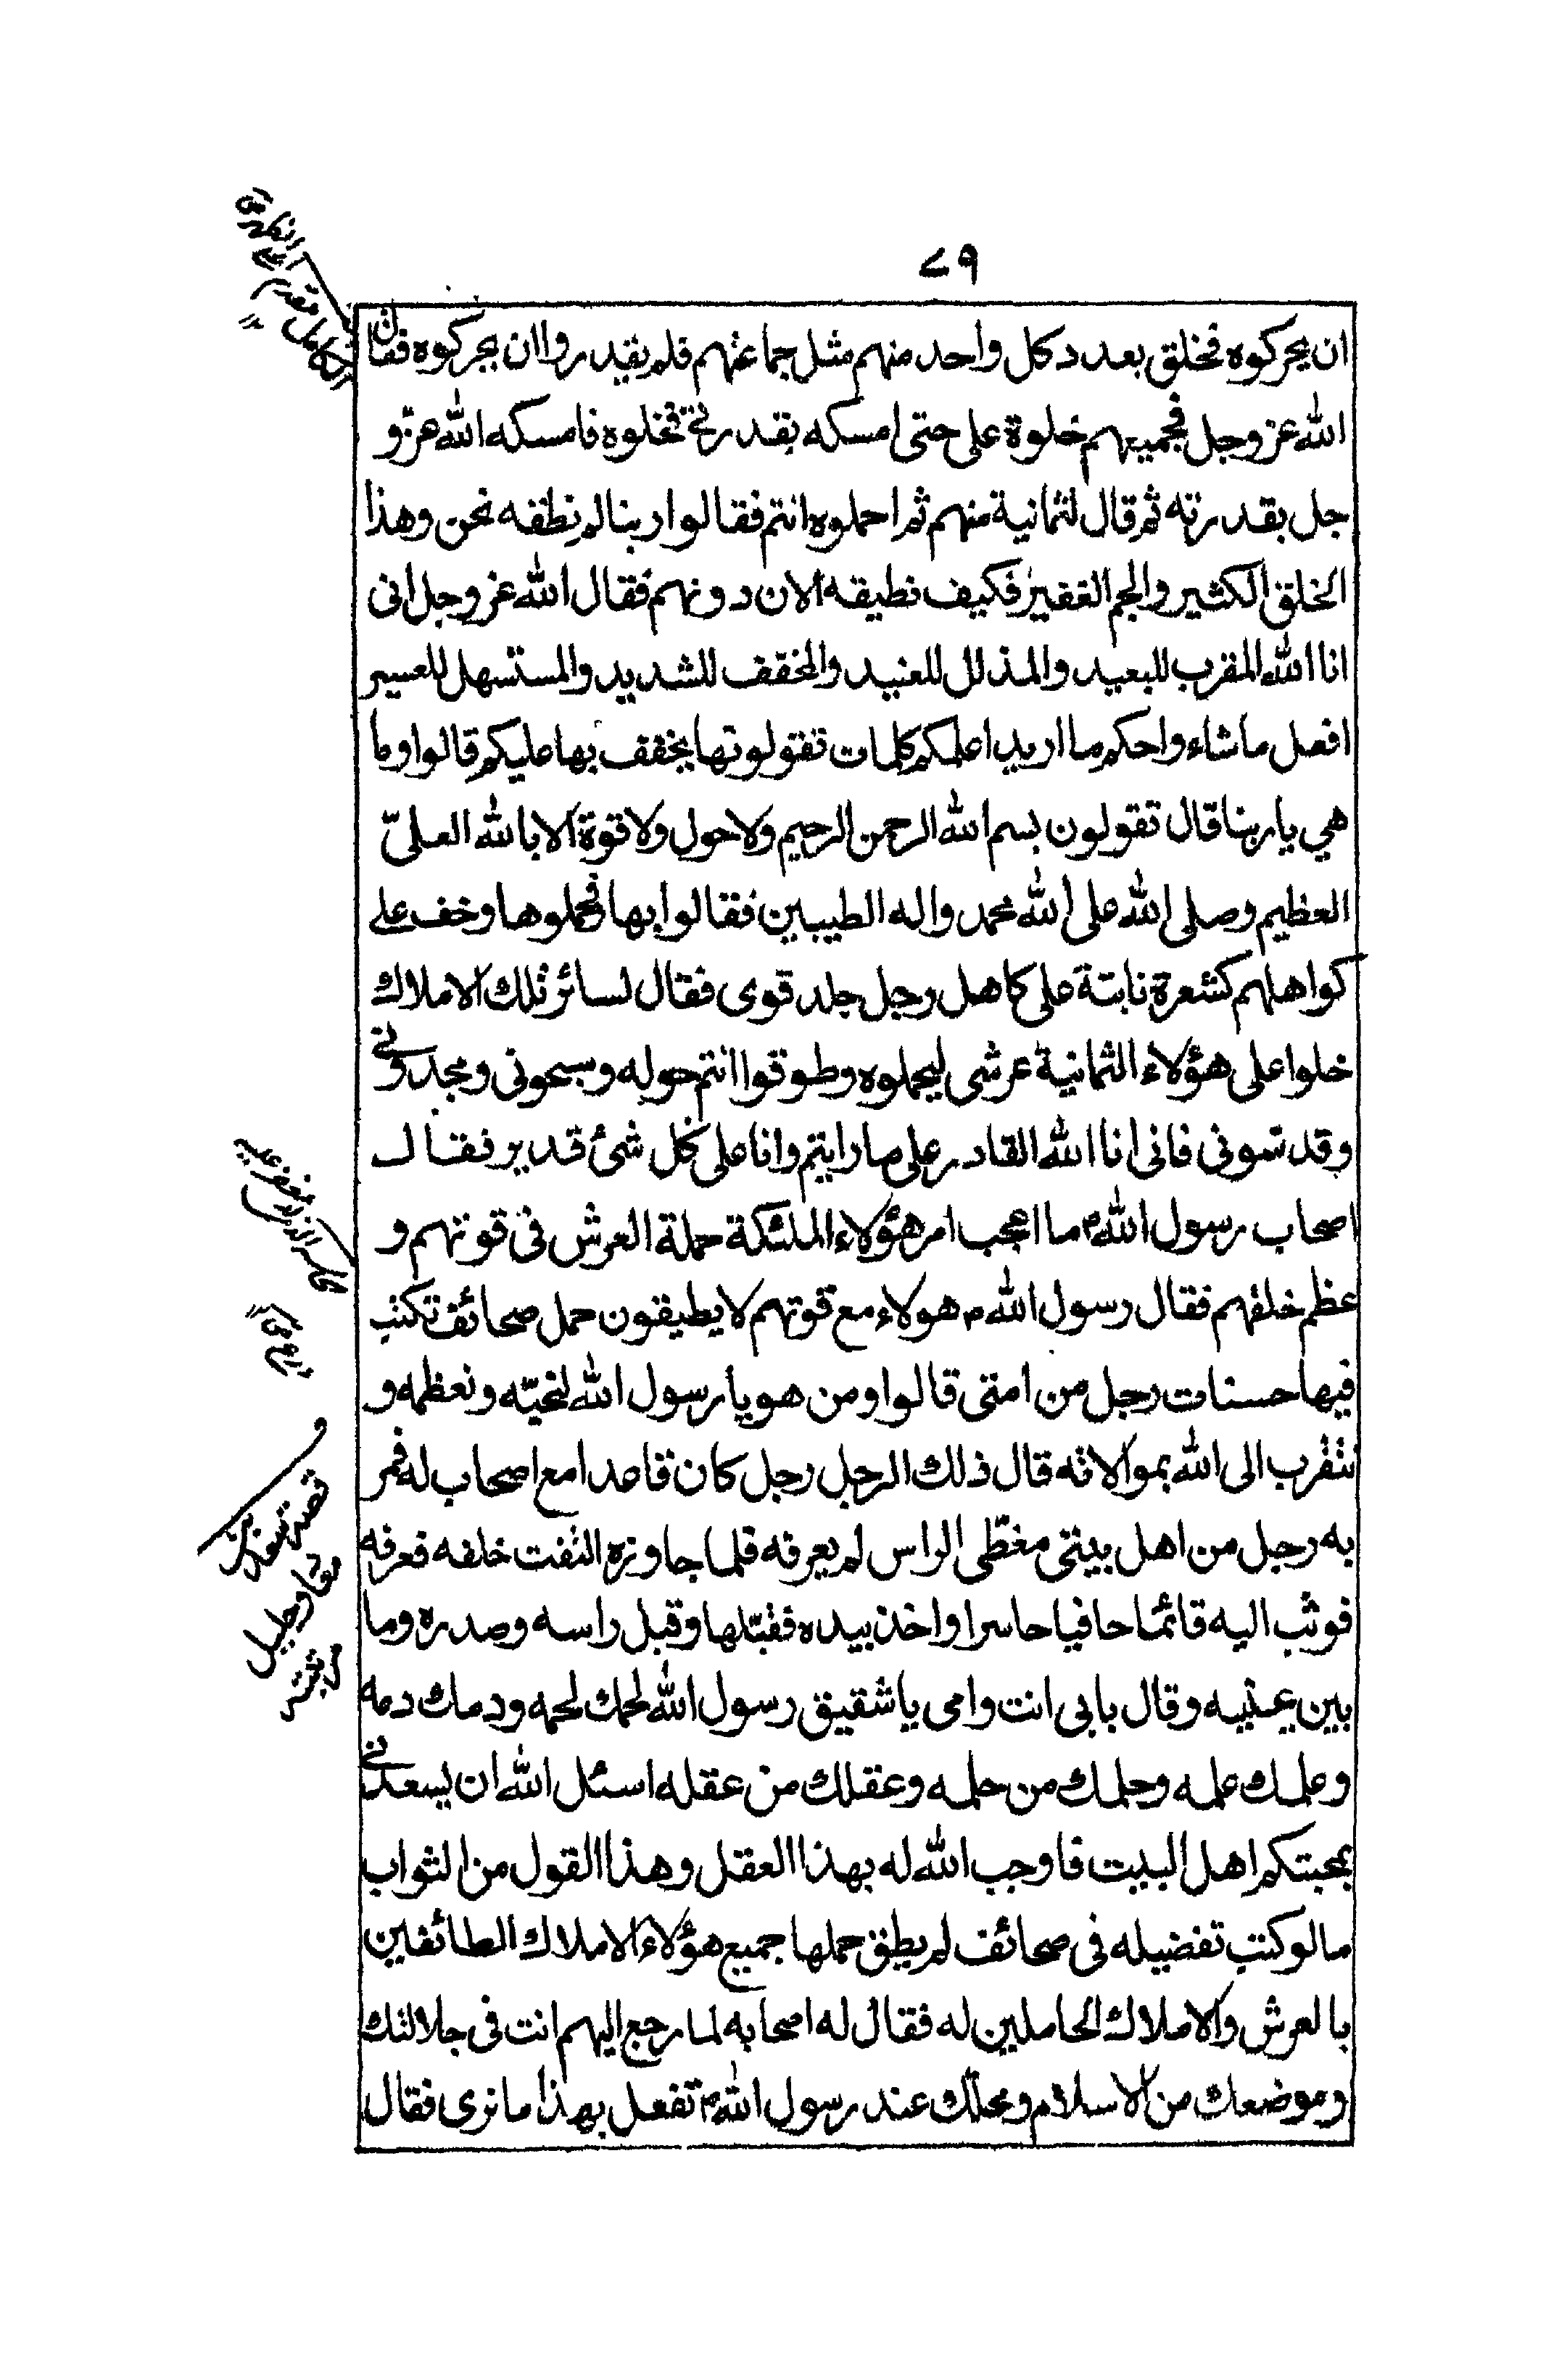 ٧٩
ان يحركوه فخلق بعدد كل واحد منهم مثل جماعتهم فلم يقدروا ان يحركوه فقال
الله عز وجل لجميعهم خلوة على حتى امسكه بقدرتى فخلوه فامسكه الله عز و
جل بقدرته ثم قال لثمانية منهم ثم احملوه انتم فقالوا ربنا لم نطقه نحن وهذا
الخلق الكثير والجم الغفير فكيف نطيقه الان دونهم فقال الله عز وجل انى
انا الله المقرب للبعيد والمذلل للعنيد والمخفف للشديد والمستسهل للعسير
افعل ما شاء واحكم ما اريد اعلمكم كلمات تقولونها يخفف بها عليكم قالوا وما
هي يا ربنا قال تقولون بسم الله الرحمن الرحيم ولا حول ولا قوة الا بالله العلىّ
العظيم وصلى الله على الله محمد واله الطيبين فقالوا بها فحملوها وخف على
كواهلهم كشعرة نابتة على كاهل رجل جلد قوى فقال لسائر تلك الاملاك
خلوا على هؤلاء الثمانية عرشى ليحملوه وطوقوا انتم حوله وسبحونى ومجدونى
وقدسونى فانى انا الله القادر على ما رايتم وانا على كل شئ قدير فقال
اصحاب رسول اللهم ما اعجب امر هؤلاء الملئكة حملة العرش فى قوتهم و
عظم خلقهم فقال رسول الله م هولاء مع قوتهم لا يطيقون حمل صحائف تكتب
فيها حسنات رجل من امتى قالوا ومن هو يا رسول الله لنحبّه ونعظمه و
نتقرب الى الله بموالاته قال ذلك الرجل رجل كان قاعدا مع اصحاب له فمر
به رجل من اهل بيتى مغطّى الراس لم يعرفه فلما جاوزه التفت خلفه فعرفه
فوثب اليه قائما حافيا حاسرا واخذ بيده فقبّلها وقبل راسه وصدره وما
بين عينيه وقال بابى انت وامى يا شقيق رسول الله لحمك لحمه ودمك دمه
وعلمك علمه وحلمك من حلمه وعقلك من عقله اسئل الله ان يسعدنى
بمحبتكم اهل البيت فاوجب الله له بهذا العقل وهذا القول من الثواب
ما لو كتب تفضيله فى صحائف لم يطق حملها جميع هؤلاء الاملاك الطائفين
بالعرش والاملاك الحاملين له فقال له اصحابه لما رجع اليهم انت فى جلالتك
وموضعك من الاسلام ومحلك عند رسول اللهم تفعل بهذا ما نرى فقال